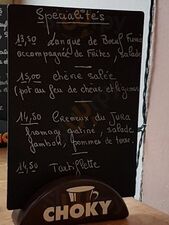 Spécialités
13,50 Langue de Boeuf
accompagnée de Frites, Salade
15,00 chèvre salée
(pot au feu de chèvre et légumes
14,50 Crémeux du Jura
fromage gratiné, salade
jambon, pommes de terre.
14,50 Tartiflette
CHOKY